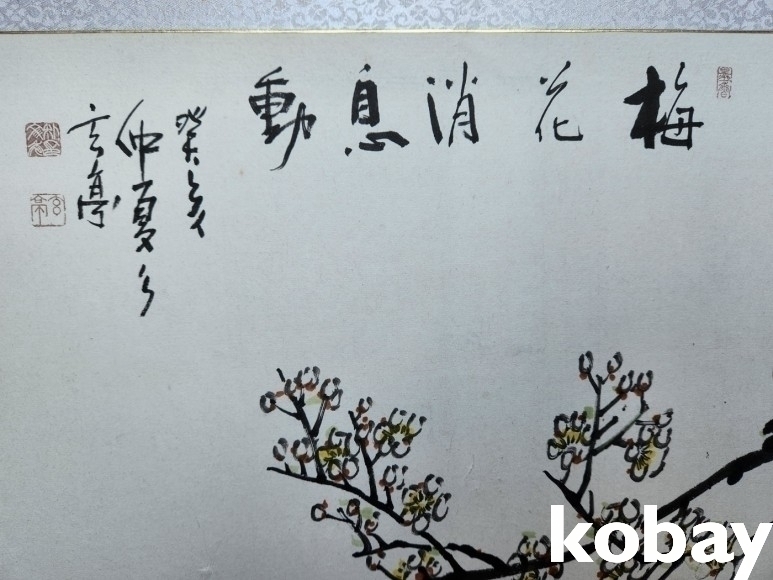 梅花消息動
癸亥
仲夏
玄亭
kobay